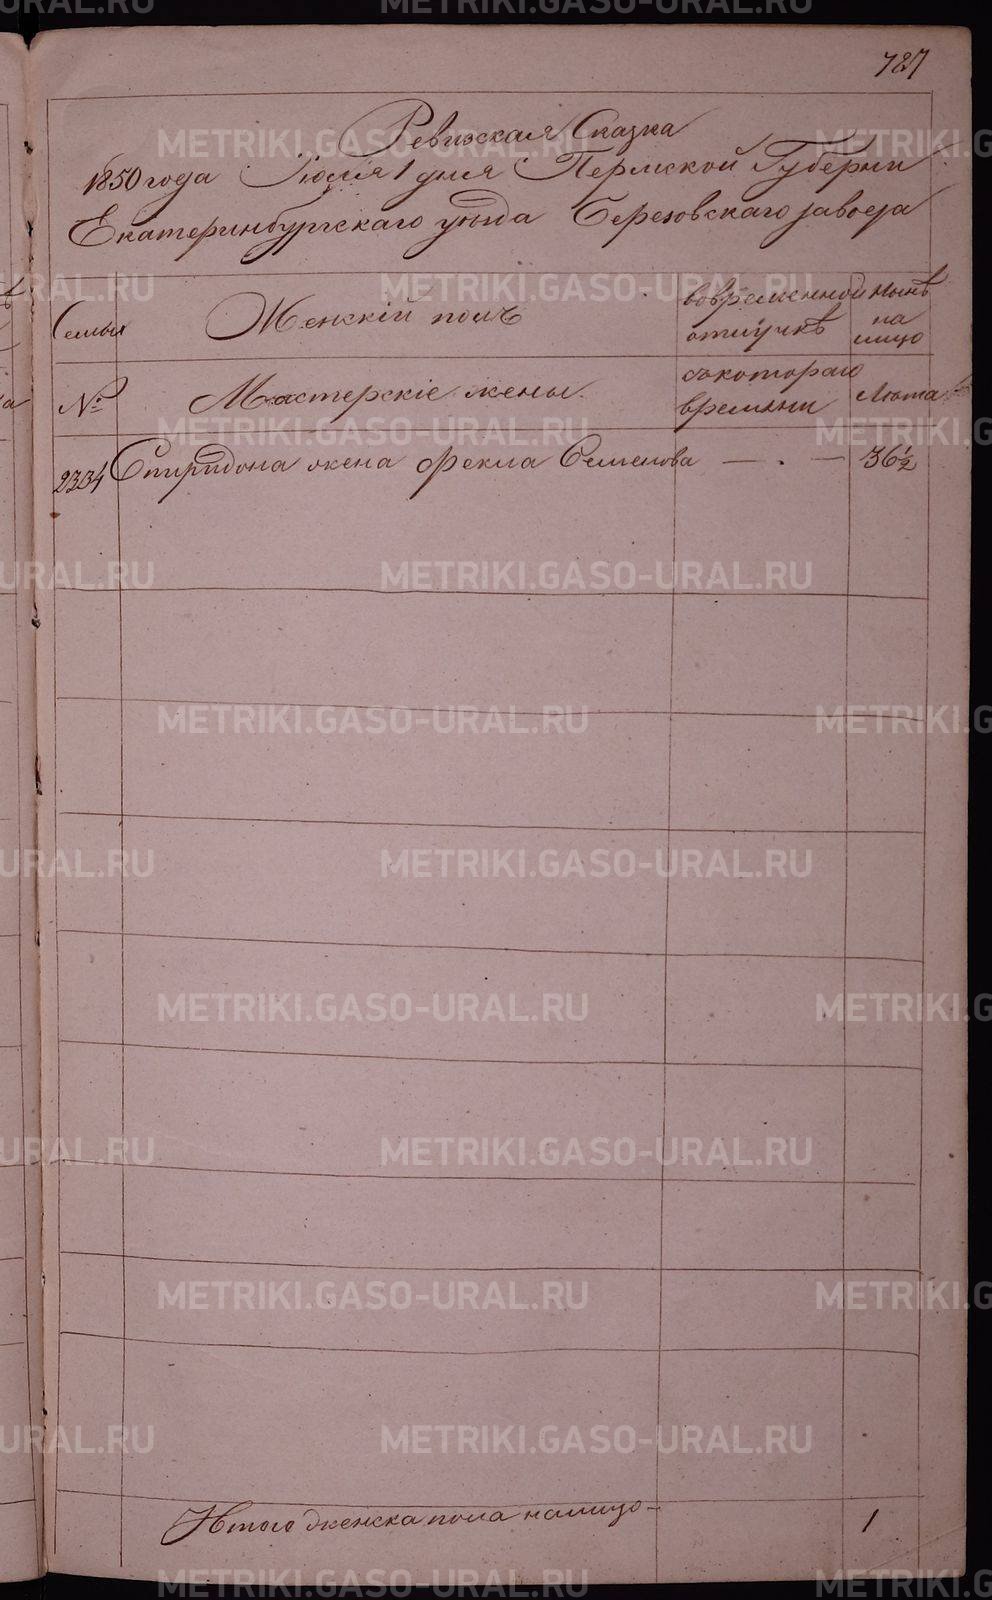 787
Ревизская Сказка
1850 года Июля 1 дня Пермской Губернии
Екатеринбургскаго уезда Березовскаго завода
Семьи
Женскій полъ
вовременной
отлучкѣ
Нынѣ
на
лицо
№
Мастерскіе жены.
съкотораго
времени
Лѣта
2334 Спиридона жена Фекла Семенова — . — 36 ½
Итого женска пола налицо – 1
METRIKI.GASO-URAL.RU